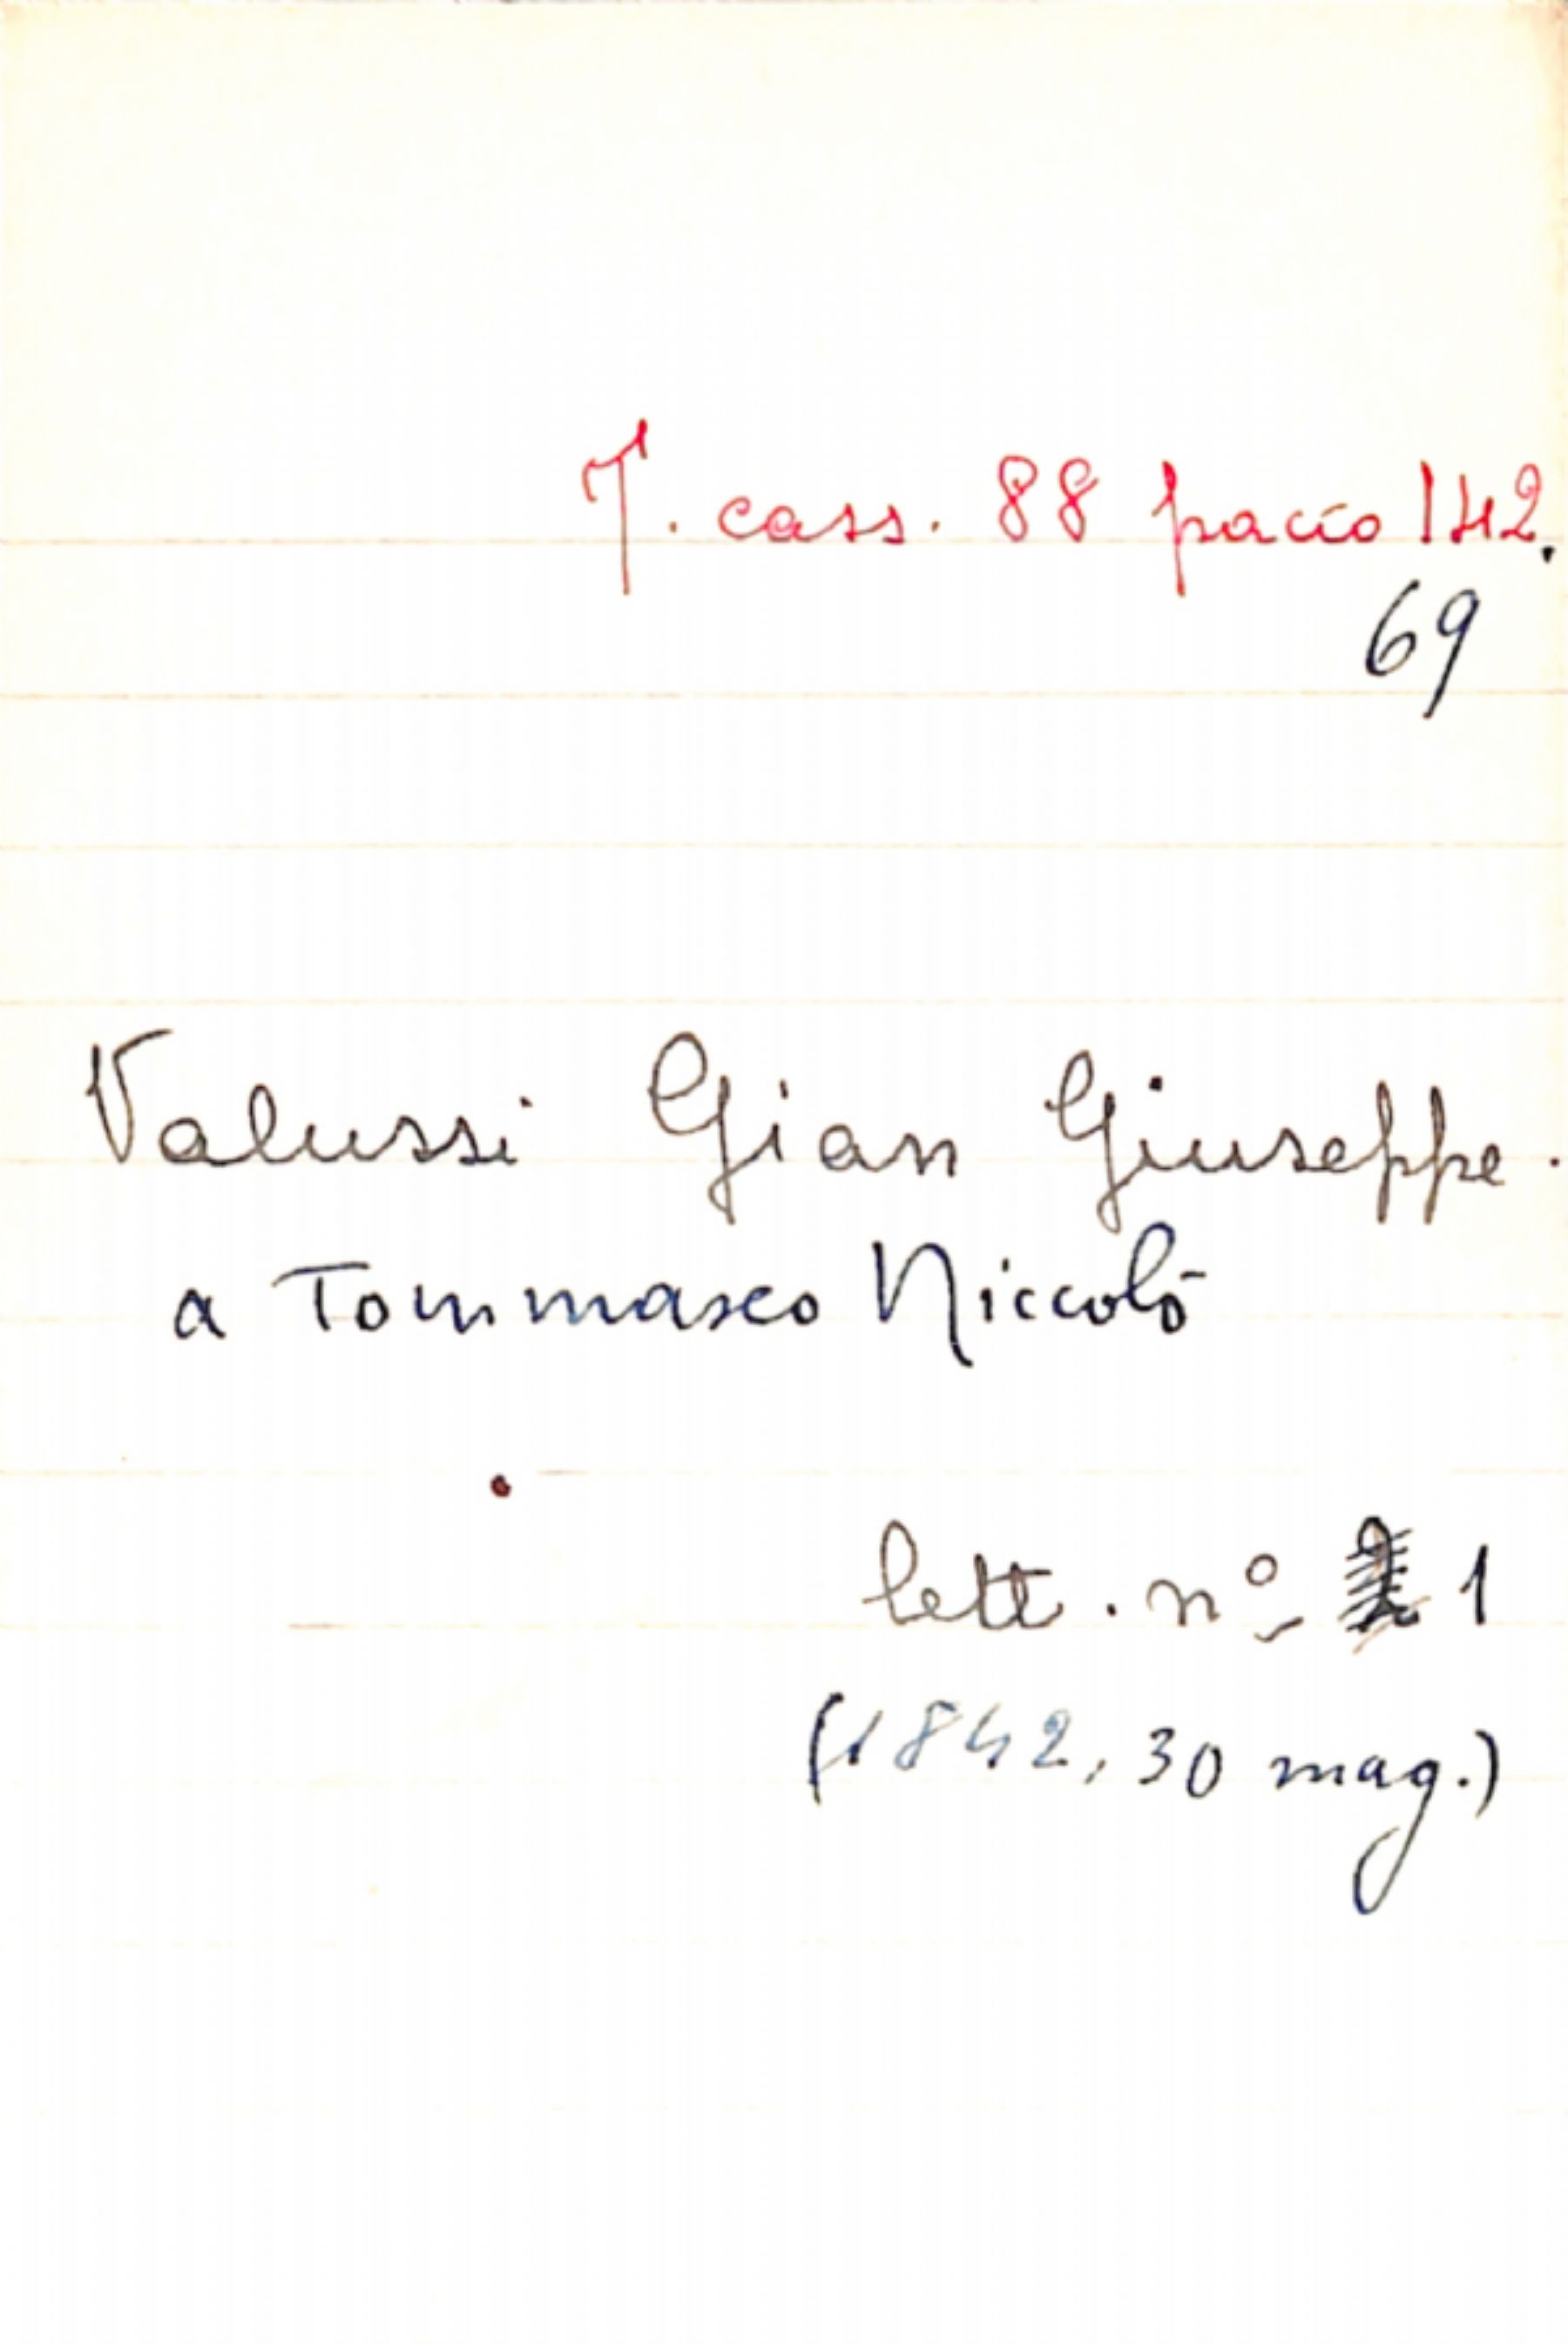 T. cass. 88 pacco 142.
69
Valussi Gian Giuseppe.
a Tommaseo Niccolò
lett. nº 1
(1842, 30 mag.)